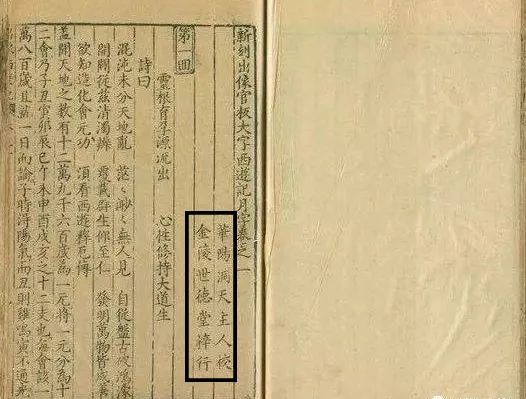 新刻出像官板大字西遊記月字卷之一
華陽洞天主人校
金陵世德堂梓行
第一回
靈根育孕源流出 心性修持大道生
詩曰
混沌未分天地亂 茫々渺々無人見 自從盤古破鴻濛
開闢從茲清濁辨 覆載群生仰至仁 發明萬物皆成善
欲知造化會元功 須看西遊釋厄傳
蓋聞天地之數有十二萬九千六百歲為一元將一元分為十
二會乃子丑寅卯辰巳午未申酉戌亥之十二支也每會該一
萬八百歲且就一日而論子時得陽氣而丑則雞鳴寅不通光